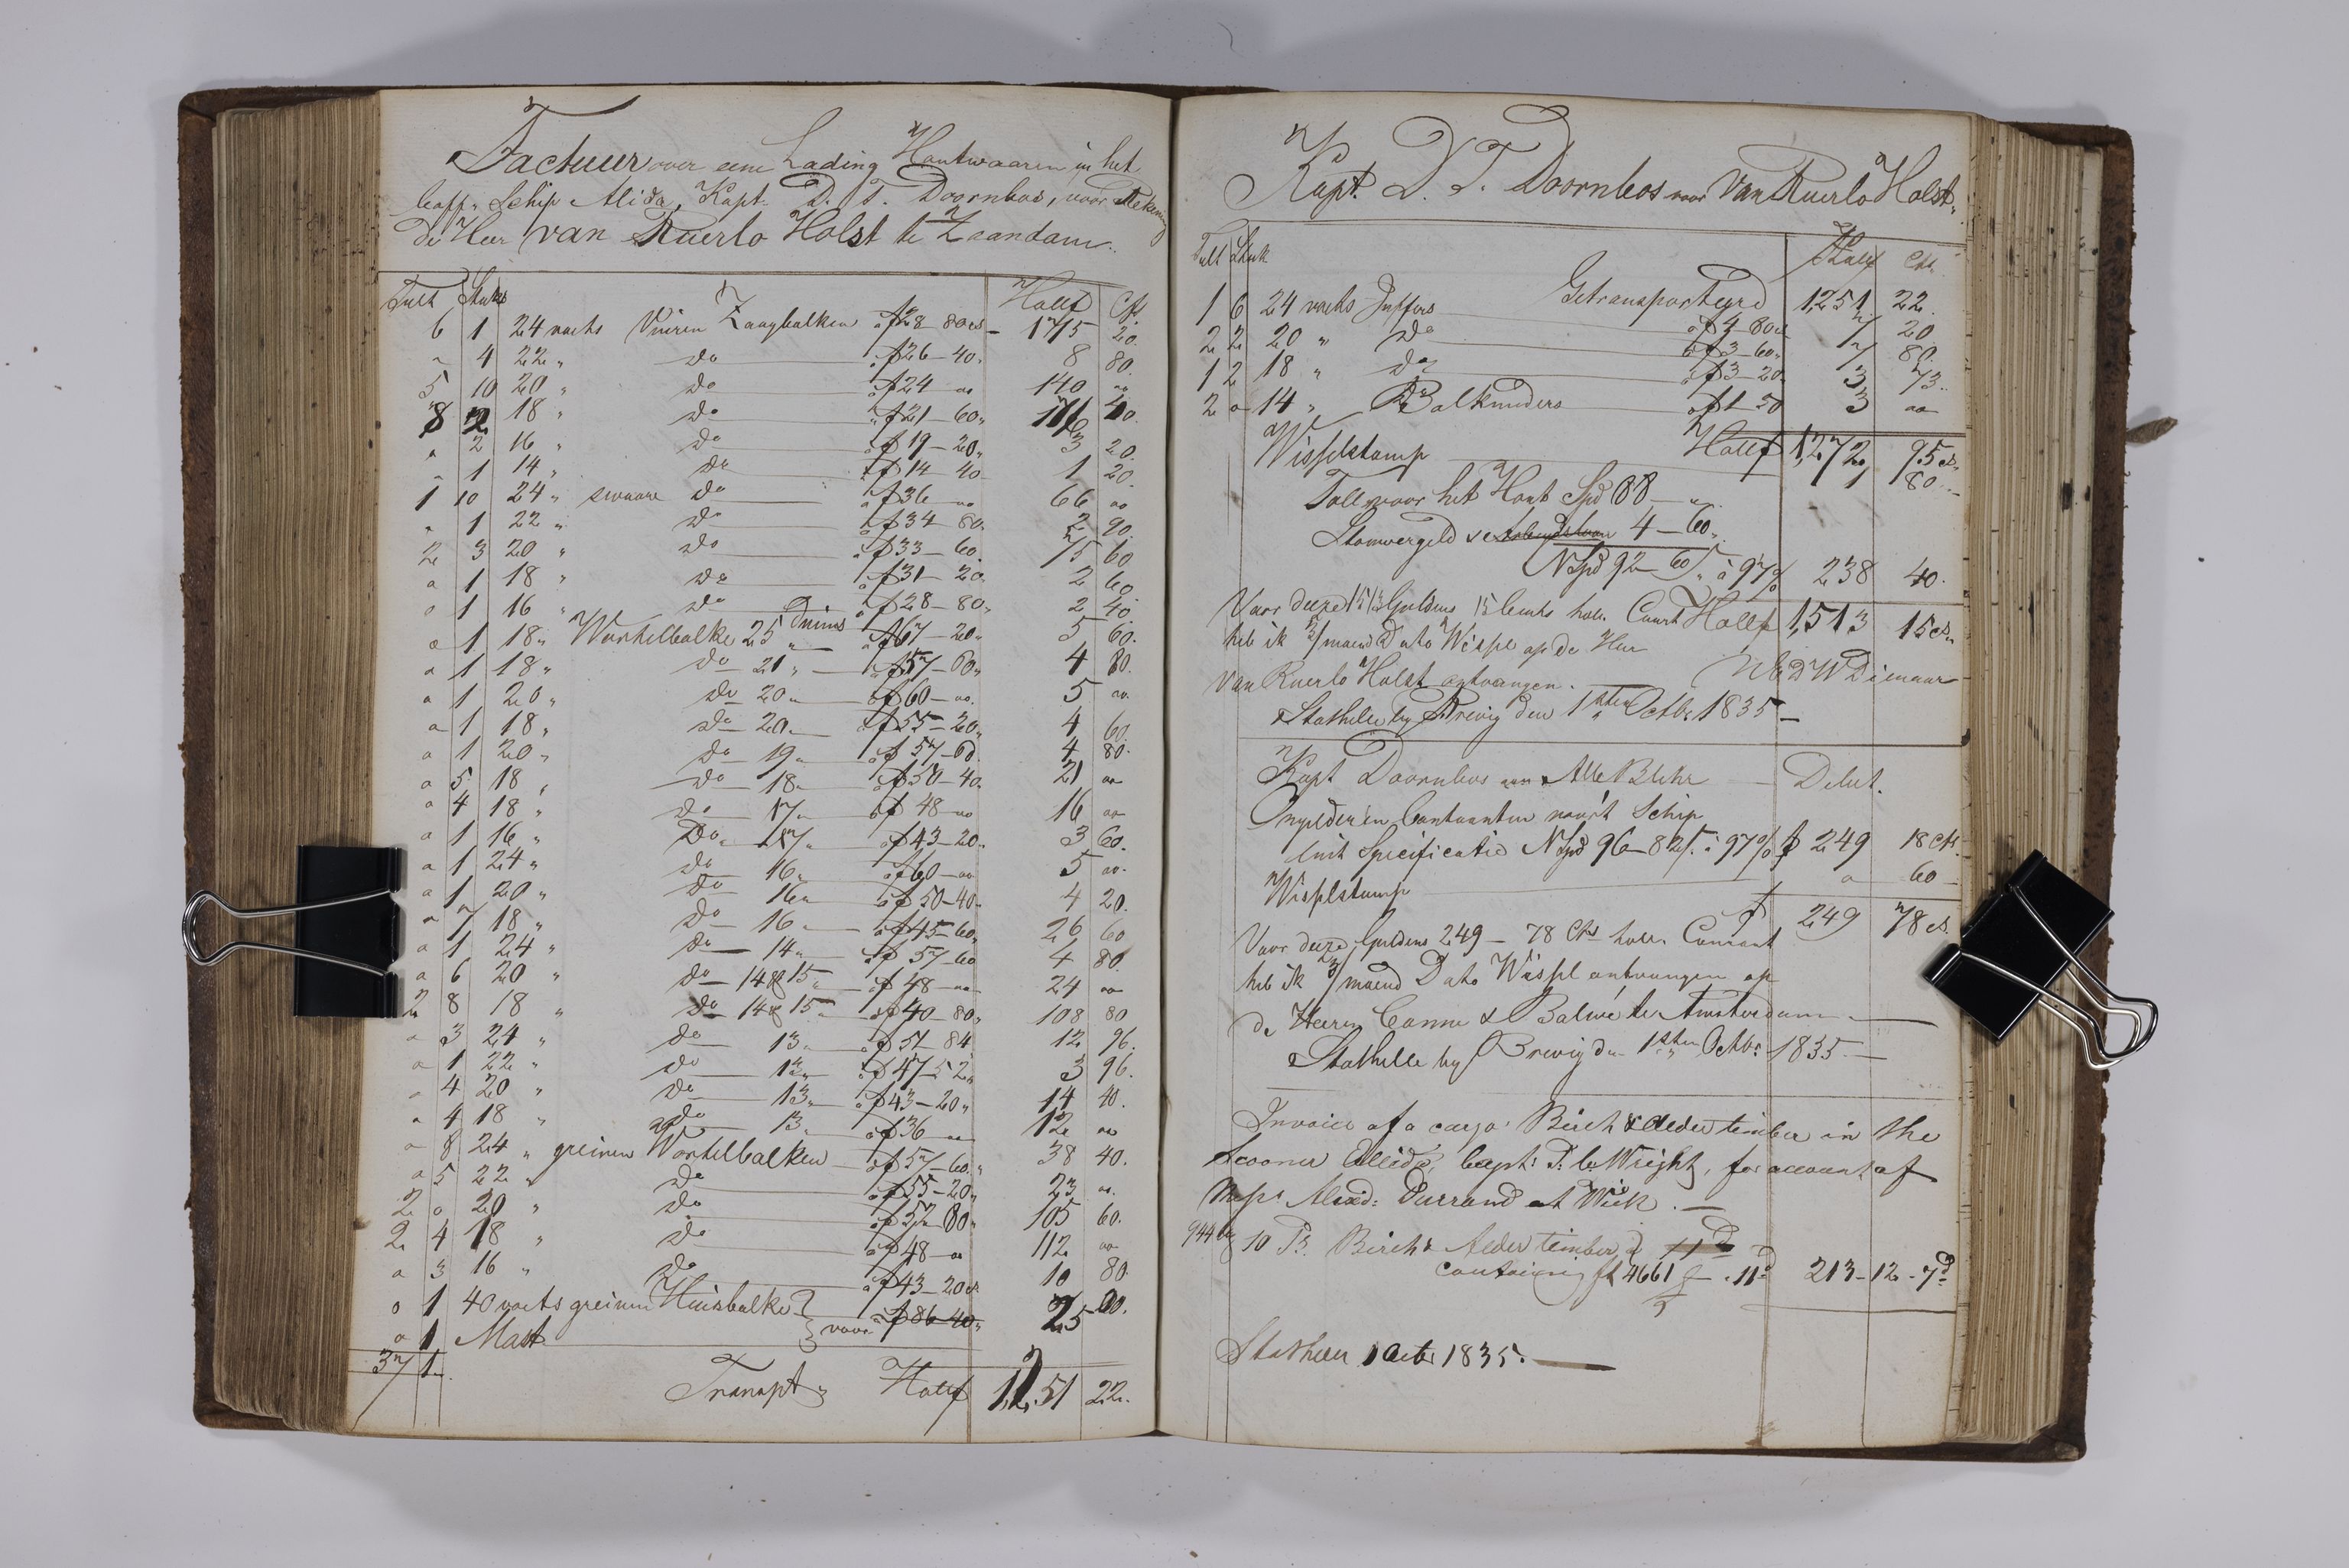 Factuur over eene Lading Hontwaaren in het
Schip Alida, Kapt. D. T. Doornbos, voor Rekening
de Heer van Ruerlo Holst te Zaandam.
Tult Stuks Hollf Cts
6 1 24 voets Vuiren Zaagbalken a f28-80cs 175 20.
" 4 22 " do a f26-40" 8 80.
5 10 20 " do a f24 " 140 "
8 2 18 " do a f21-60" 176 40.
" 2 16 " do a f19-20" 3 20.
" 1 14 " do a f14-40 1 20.
1 10 24 " swaare do a f36 " 66 "
" 1 22 " do a f34-80 2 90.
2 3 20 " do a f33-60. 75 60
" 1 18 " do a f31-20 2 60
" 1 16 " do a f28-80" 2 40.
" 1 18 " Wortelbalke 25 duims a f67-20" 5 60.
" 1 18 " do 21 " a f57-60" 4 80.
" 1 20 " do 20 " a f60-" 5 "
" 1 18 " do 20 " a f55-20" 4 60.
" 1 20 " do 19 " a f57-60 4 80.
" 5 18 " do 18 " a f50-40. 21 "
" 4 18 " do 17 " a f48 " 16 "
" 1 16 " do 17 " a f43-20" 3 60.
" 1 24 " do 16 " a f60-" 5 "
" 1 20 " do 16 " a f50-40" 4 20.
" 7 18 " do 16 " a f45-60" 26 60
" 1 24 " do 14 " a f57-60 4 80.
" 6 20 " do 14 & 15 " a f48 " 24 "
2 8 18 " do 14 & 15 " a f40-80" 108 80
" 3 24 " do 13 " a f51-84 12 96.
" 1 22 " do 13 " a f47-52" 3 96.
" 4 20 " do 13 " a f43-20" 14 40.
" 4 18 " do 13 " a f36 " 12 "
" 8 24 " greinen Wortelbalken a f57-60" 38 40.
" 5 22 " do a f55-20" 23 "
2 " 20 " do a f52-80" 105 60.
2 4 18 " do a f48 " 112 "
" 3 16 " do a f43-20cs 10 80.
" 1 40 voets greinen Huisbalke } f86-40" 25 00.
" 1 Mast } voor
37 1
Transpt Hollf 1,251 22.
Kapt. D. T. Doornbos voor Van Ruerlo Holst.
Tult Stuk Hollf Cts
Getransporteerd 1,251 22.
1 6 24 voets Juffers a f4-80cs 7 20
2 2 20 " do a f3-60" 7 80.
1 2 18 " do a f3-20. 3 73.
2 " 14 " Balkenders a f1-50 3 "
Hollf 1,272, 95cs.
Wisselstamp 1 80
Toll voor het Hont Spd 88 - "
Stomvergeld 4 - 60"
N Spd 92 - 60/5 a 97% 238 40.
Voor deeze 1513 Guldens 15 Cents holl. Court Hollf 1,513 15cs.
heb ik 2/maend Dato Wissel op de Heer
Van Ruerlo Holst ontvangen.
Stathelle by Brevig den 1sten Octbr 1835 -
Kapt Doornbos aan Alle Blehr Debet.
Ongelder en Contanten voor't Schip
luit Specificatie N Spd 96-82/5. a 97% f 249 18 Cts.
Wisselstamp " 60
f 249 78cs.
Voor deeze Guldens 249 - 78 Cts holl. Courant
heb ik 3/maend Dato Wissel ontvangen op
de Heeren Canne & Balwé te Amsterdam.
Stathelle by Brevig den 1sten Octbr 1835 -
Invoice of a cargo Birch & Alder timber in the
Scooner Capt: Wright, for account of
Messrs Alexd: Durrand at Wick. -
944 10 Ps. Birch & Alder timber } 11d
containing ft 4661 a 11d 213-12-7d
Stathelle 1 Octr 1835.